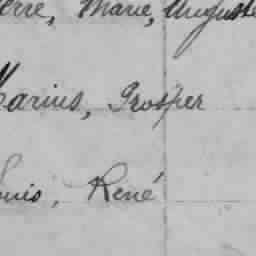 erre, Marie, Auguste
Marius, Prosper
ouis, René